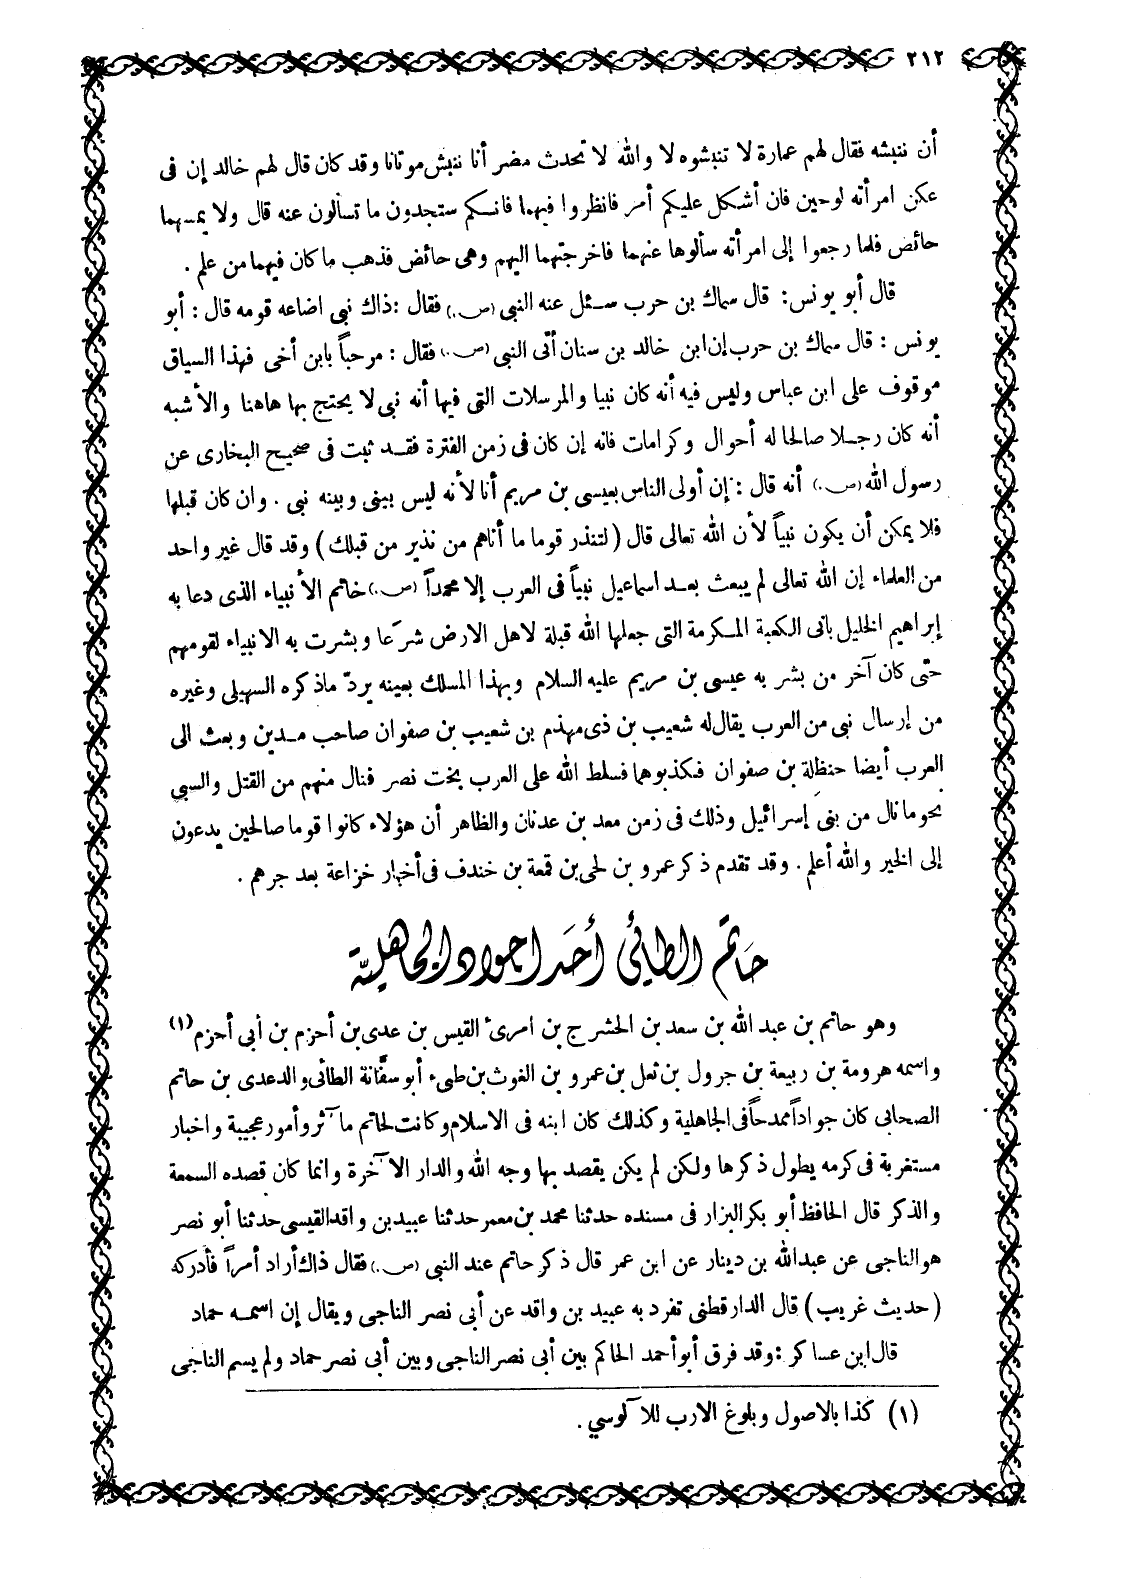 ٢١٢
أن ننبشه فقال لهم عمارة لا تنبشوه لا والله لا تحدث مضر أنا ننبش موتانا وقد كان قال لهم خالد إن فى
عكن امرأته لوحين فان أشكل عليكم أمر فانظروا فيهما فانكم ستجدون ما تسألون عنه قال ولا يمسهما
حائض فلما رجعوا إلى امرأته سألوها عنهما فاخرجتهما اليهم وهى حائض فذهب ما كان فيهما من علم .
قال أبو يونس: قال سماك بن حرب سئل عنه النبى (ص.) فقال : ذاك نبى اضاعه قومه قال : أبو
يونس : قال سماك بن حرب إن ابن خالد بن سنان أتى النبى (ص.) فقال : مرحباً بابن أخى فهذا السياق
موقوف على ابن عباس وليس فيه أنه كان نبيا والمرسلات التى فيها أنه نبى لا يحتج بها هاهنا والأشبه
أنه كان رجلا صالحا له أحوال وكرامات فانه إن كان فى زمن الفترة فقد ثبت فى صحيح البخارى عن
رسول الله (ص.) أنه قال : إن أولى الناس بعيسى بن مريم أنا لأنه ليس بينى وبينه نبى . وان كان قبلها
فلا يمكن أن يكون نبياً لأن الله تعالى قال (لتنذر قوما ما أتاهم من نذير من قبلك) وقد قال غير واحد
من العلماء إن الله تعالى لم يبعث بعد اسماعيل نبياً فى العرب إلا محمداً (ص.) خاتم الأنبياء الذى دعا به
إبراهيم الخليل بانى الكعبة المكرمة التى جعلها الله قبلة لاهل الارض شرعا وبشرت به الانبياء لقومهم
حتى كان آخر من بشر به عيسى بن مريم عليه السلام وبهذا المسلك بعينه يردّ ماذكره السهيلى وغيره
من إرسال نبى من العرب يقال له شعيب بن ذى مهذم بن شعيب بن صفوان صاحب مدين وبعث الى
العرب أيضا حنظلة بن صفوان فكذبوهما فسلط الله على العرب بخت نصر فنال منهم من القتل والسبى
نحو ما نال من بنى إسرائيل وذلك فى زمن معد بن عدنان والظاهر أن هؤلاء كانوا قوما صالحين يدعون
إلى الخير والله أعلم . وقد تقدم ذكر عمرو بن لحى بن قمعة بن خندف فى أخبار خزاعة بعد جرهم .
حَاتم الطائي أحَد اجواد الجاهليَّة
وهو حاتم بن عبد الله بن سعد بن الحشرج بن امرئ القيس بن عدى بن أحزم بن أبى أحزم (١)
واسمه هرومة بن ربيعة بن جرول بن ثعل بن عمرو بن الغوث بن طىء أبو سفَّانة الطائى والد عدى بن حاتم
الصحابى كان جواداً ممدحاً فى الجاهلية وكذلك كان ابنه فى الاسلام وكانت لحاتم مآثر وأمور عجيبة واخبار
مستغربة فى كرمه يطول ذكرها ولكن لم يكن يقصد بها وجه الله والدار الآخرة وانما كان قصده السمعة
والذكر قال الحافظ أبو بكر البزار فى مسنده حدثنا محمد بن معمر حدثنا عبيد بن واقد القيسى حدثنا أبو نصر
هو الناجى عن عبد الله بن دينار عن ابن عمر قال ذكر حاتم عند النبى (ص.) فقال ذاك أراد أمراً فأدركه
(حديث غريب) قال الدارقطنى تفرد به عبيد بن واقد عن أبى نصر الناجى ويقال إن اسمه حماد
قال ابن عساكر : وقد فرق أبو أحمد الحاكم بين أبى نصر الناجى وبين أبى نصر حماد ولم يسم الناجى
(١) كذا بالاصول وبلوغ الارب للآلوسي .